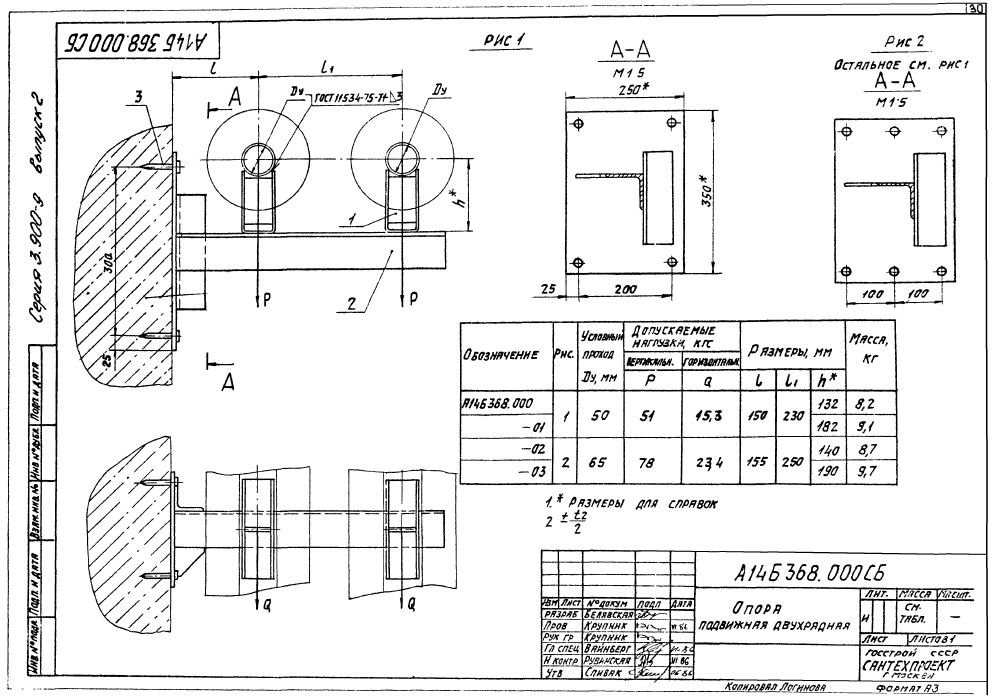 30
А14Б 368.000 СБ
Серия 3.900-9 выпуск 2
Рис 1
l
l1
А
Dу
ГОСТ 11534-75-Т1 3
Dу
3
h*
300
25
1
2
P
P
А
Q
Q
А-А
М1:5
250*
350*
25
200
Рис 2
Остальное см. рис 1
А-А
М1:5
100
100
Обозначение Рис. Условный проход Dу, мм Допускаемые нагрузки, кгс Размеры, мм Масса, кг
вертикальн. P горизонтальн. Q l l1 h*
А14Б368.000 1 50 51 15,3 150 230 132 8,2
-01 182 9,1
-02 2 65 78 23,4 155 250 140 8,7
-03 190 9,7
1.* Размеры для справок
2 ± t2/2
Инв № подл. Подп. и дата Взам. инв. № Инв № дубл. Подп. и дата
А14Б368.000СБ
Изм Лист № докум Подп Дата
Разраб Белявская
Пров Крупник VI 86
Рук гр Крупник
Гл спец Вайнберг
Н контр Рубинская VI 86
Утв Спивак 06.86
Опора
подвижная двухрядная
Лит. Масса Масшт.
И см. табл. –
Лист Листов 1
Госстрой СССР
Сантехпроект
г Москва
Копировал Логинова Формат А3